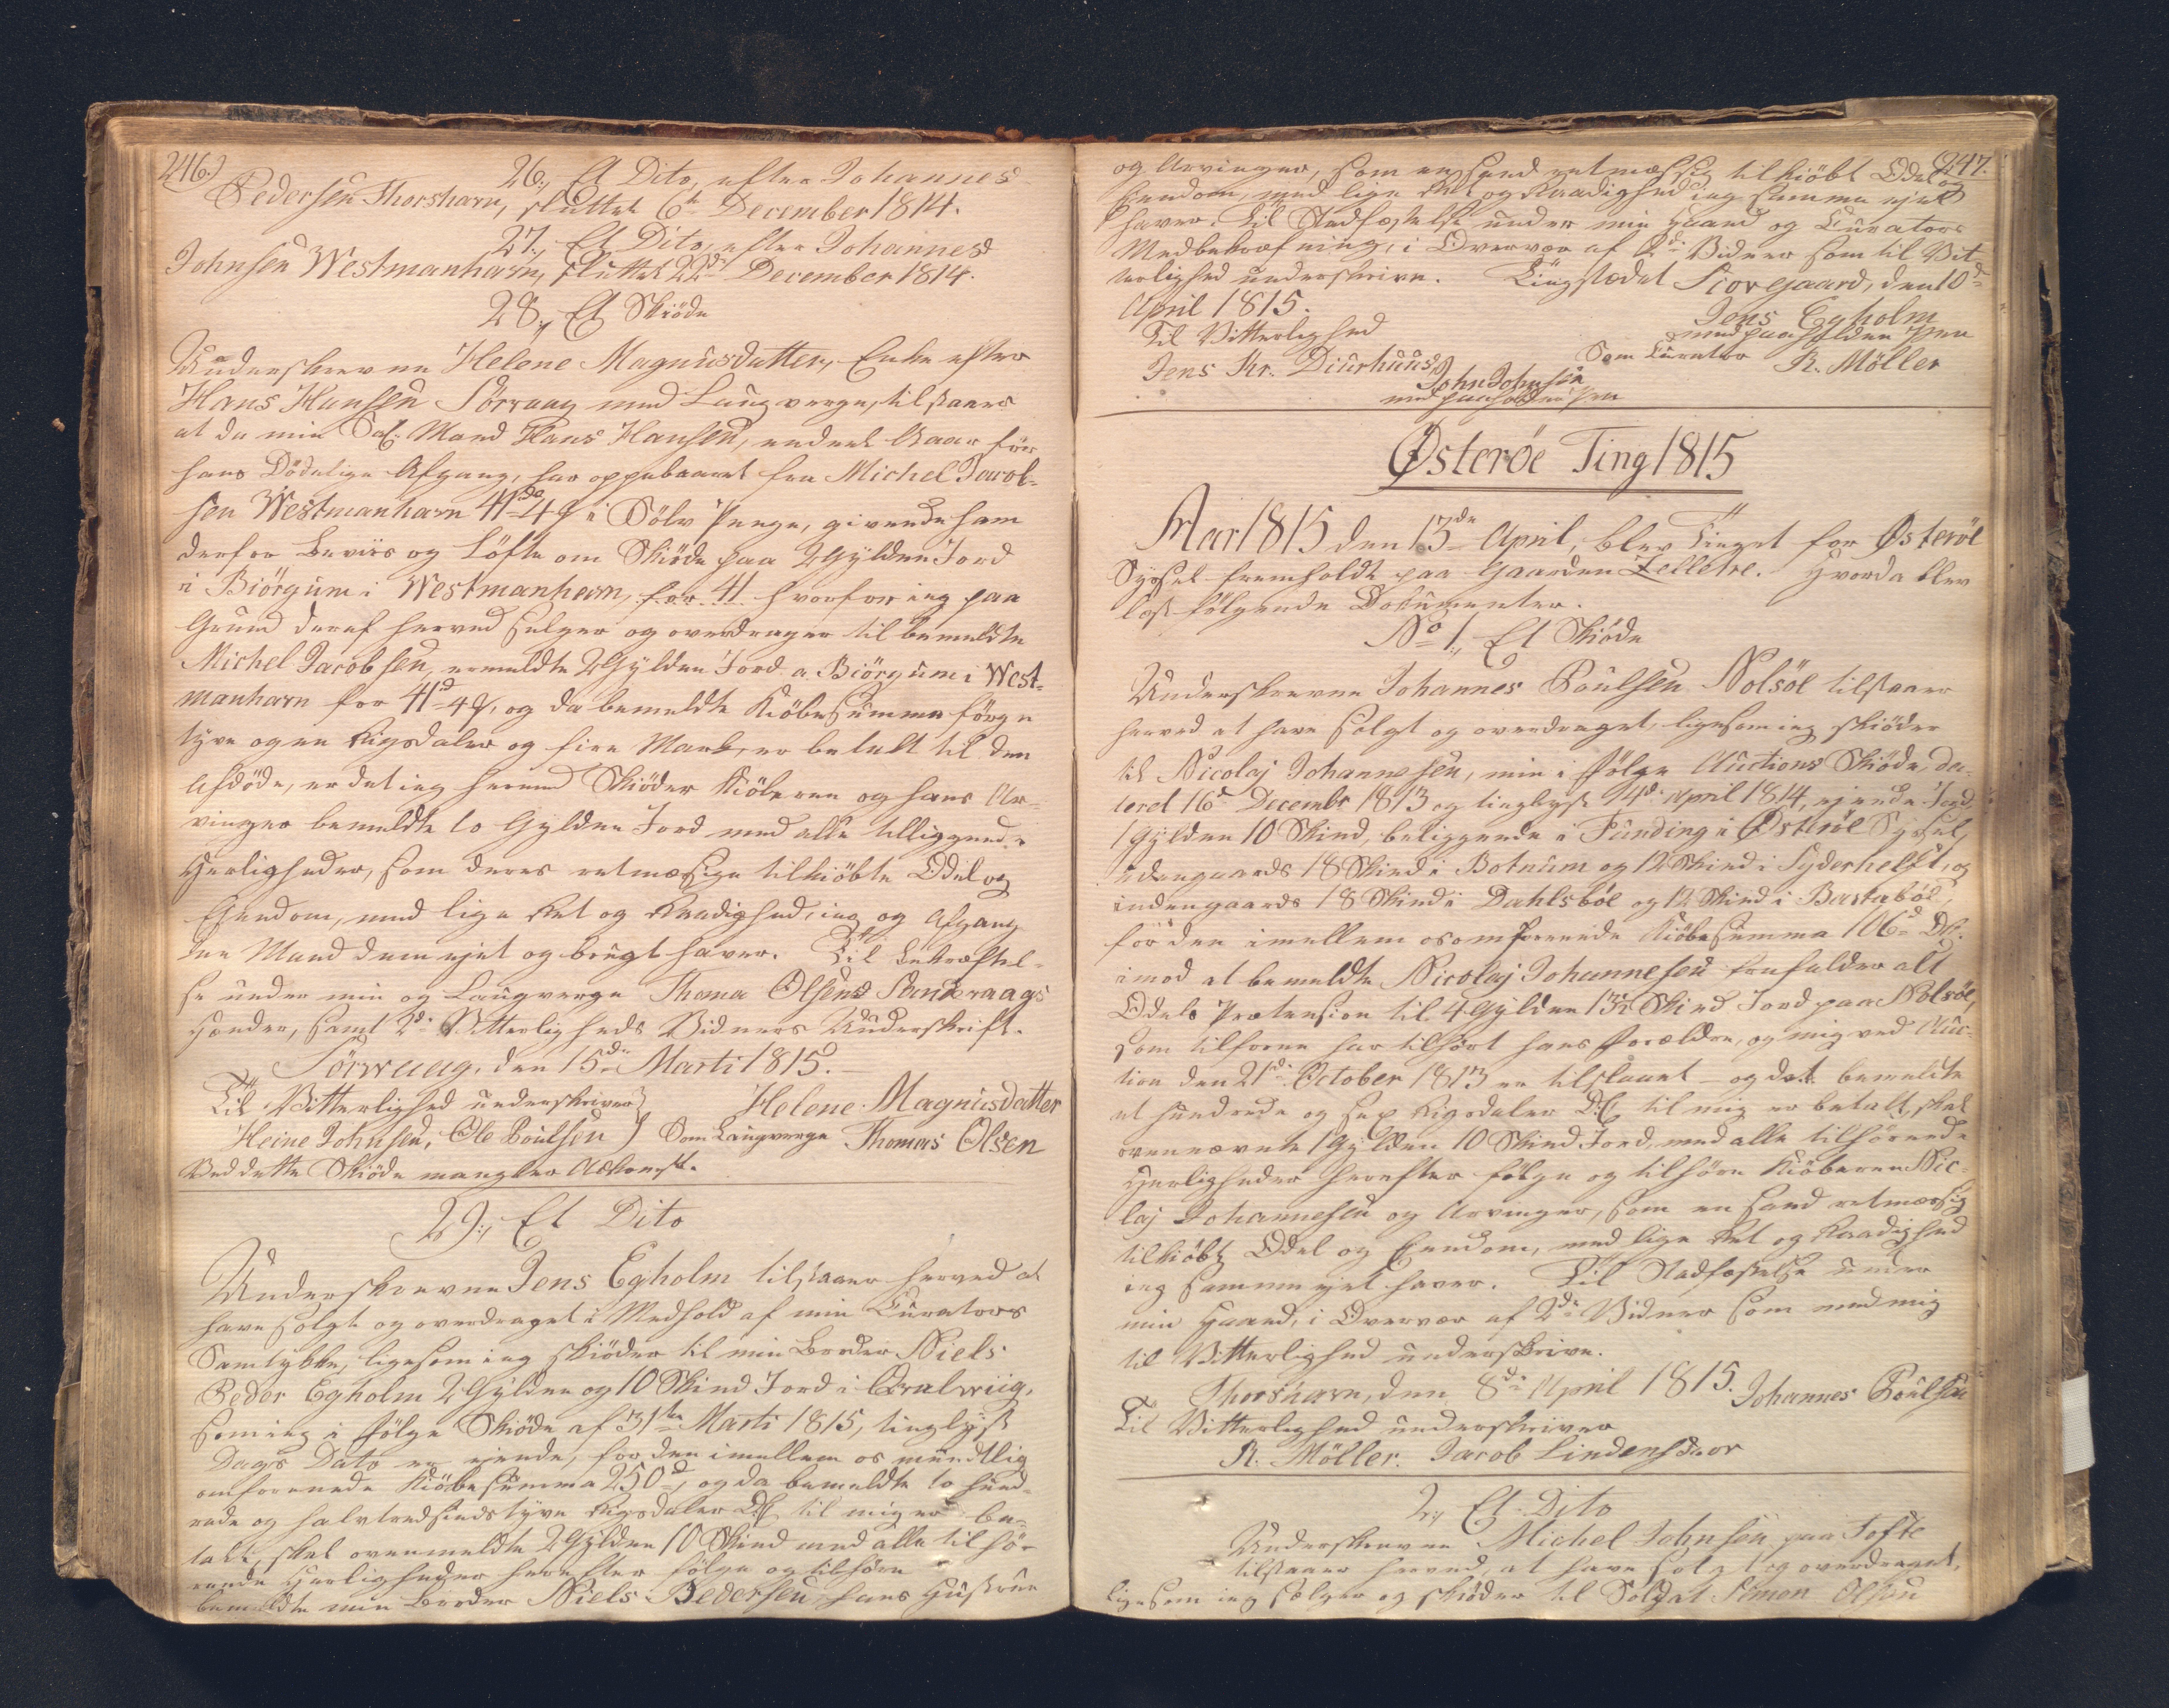 246.)
26., Et Dito, efter Johannes
Pedersen Thorshavn, sluttet 6te December 1814.
27., Et Dito, efter Johannes
Johnsen Westmanhavn, sluttet 22de December 1814.
28., Et Skiöde
Underskrevne Helene Magnusdatter, Enke efter
Hans Hansen Sörvaag med Laugverge, tilstaaer
at da min Sal: Mand Hans Hansen, endeel Aaar för
hans Dödelige Afgang, har oppebaaret fra Michel Jacob-
sen Westmanhavn 41do 4 i Sölv Penge, givende ham
derfor Beviis og Löfte om Skiöde paa 2 Gylden Jord
i Biörgum i Westmanhavn, for 41 hvorfor ieg paa
Grund deraf herved selger og overdrager til bemeldte
Michel Jacobsen, ermeldte 2 Gylden Jord a Biörgum i West-
manhavn for 41d 4, og da bemeldte Kiöbesumma förge
tyve og en Rigsdaler og fire Mark, er betalt til den
Afdöde, er det ieg herved Skiöder Kiöberen og hans Ar-
vinger bemeldte to Gylden Jord med alle tilliggende
Herligheder, som deres retmæssige tilkiöbte Odel og
Eiendom, med lige Ret og Raadighed, ieg og Afgang
den Mand dem ejet og brugt haver. Til Bekræftel-
se under min og Laugverge Thoma Olsens Sandevaags
Hænder, samt 2de Vitterligheds Vidners Underskrift.
Sörwaag, den 15de Marti 1815.
Til Vitterlighed underskriver Helene Magnusdatter
Heine Johnsen, Ole Poulsen Som Laugverge Thomas Olsen
Ved dette Skiöde mangler Adkomst.
29., Et Dito
Underskrevne Jens Egholm tilstaaer herved at
have solgt og overdraget i Medhold af min Curators
Samtykke, ligesom ieg skiöder til min Broder Niels
Peder Egholm 2 Gylden og 10 Skind Jord i Qvalwiig,
som ieg i fölge Skiöde af 31te Marti 1815, tinglyst
Dags Dato er ejende, for den imellem os mundtlig
omforenede Kiöbesumma 250d, og da bemeldte to hund-
rede og halvtredsindstyve Rigsdaler D.C. til mig er be-
talt, skal ovenmeldte 2 Gylden 10 Skind med alle tilhö-
rende Herligheder herefter fölge og tilhöre
bemeldte min Broder Niels Pedersen, hans Hustrue
247.
og Arvinger, som en sand retmæssig tilkiöbt Odel og
Eiendom, med lige Ret og Raadighed ieg samme ejet
haver. Til Stadfæstelse under min Haand og Curators
Medbekræfning, i Overvær af 2de Vidner som til Vit-
terlighed underskrive. Tingstædet Siovegaard, den 10de
April 1815.
Jens Egholm
Til Vitterlighed med paaholden Pen
Jens Kr. Diurhuus, Som Curator R. Möller
John Johnsen
med paaholden Pen
Østeröe Ting 1815
Aar 1815 den 13de April, blev Tinget for Østeröe
Syssel fremholdt paa Gaarden Selletræ. Hvorda blev
læst fölgende Documenter.
No 1., Et Skiöde
Underskrevne Johannes Poulsen Nolsöe tilstaaer
herved at have solgt og overdraget, ligesom ieg skiöder
til Nicolaj Johannesen, min i fölge Auctions Skiöde, da-
teret 16de Decembr 1813 og tinglyst 14de April 1814, ejende Jord,
1 Gylden 10 Skind, beliggende i Funding i Østeröe Syssel,
udengaards 18 Skind i Botnum og 12 Skind i Syderhelst, og
indengaards 18 Skind i Dahlsböe og 12 Skind i Bartaböe,
for den imellem os omforenede Kiöbesumma 106d D.C.
imod at bemeldte Nicolaj Johannesen frafalder alt
Odels Prætension til 4 Gylden 13½ Skind Jord paa Nolsöe,
som tilforne har tilhört hans Forældre, og mig ved Auc-
tion den 21de October 1813 er tilslaaet - og da bemeldte
et hundrede og sex Rigsdaler D.C. til mig er betalt, skal
ovennævnte 1 Gylden 10 Skind Jord, med alle tilhörende
Herligheder herefter fölge og tilhöre Kiöberen Nico-
laj Johannesen og Arvinger, som en sand retmæssig
tilkiöbt Odel og Eiendom, med lige Ret og Raadighed
ieg samme ejet haver. Til Stadfæstelse under
min Haand, i Overvær af 2de Vidner som med mig
til Vitterlighed underskrive.
Thorshavn, den 8de April 1815. Johannes Poulsen
Til Vitterlighed underskriver
R. Möller. Jacob Lindenskov
2., Et Dito
Underskrevne Michel Johnsen paa Tofte
tilstaaer herved, at have solgt og overdraget,
ligesom ieg sælger og skiöder til Soldat Simon Olsen